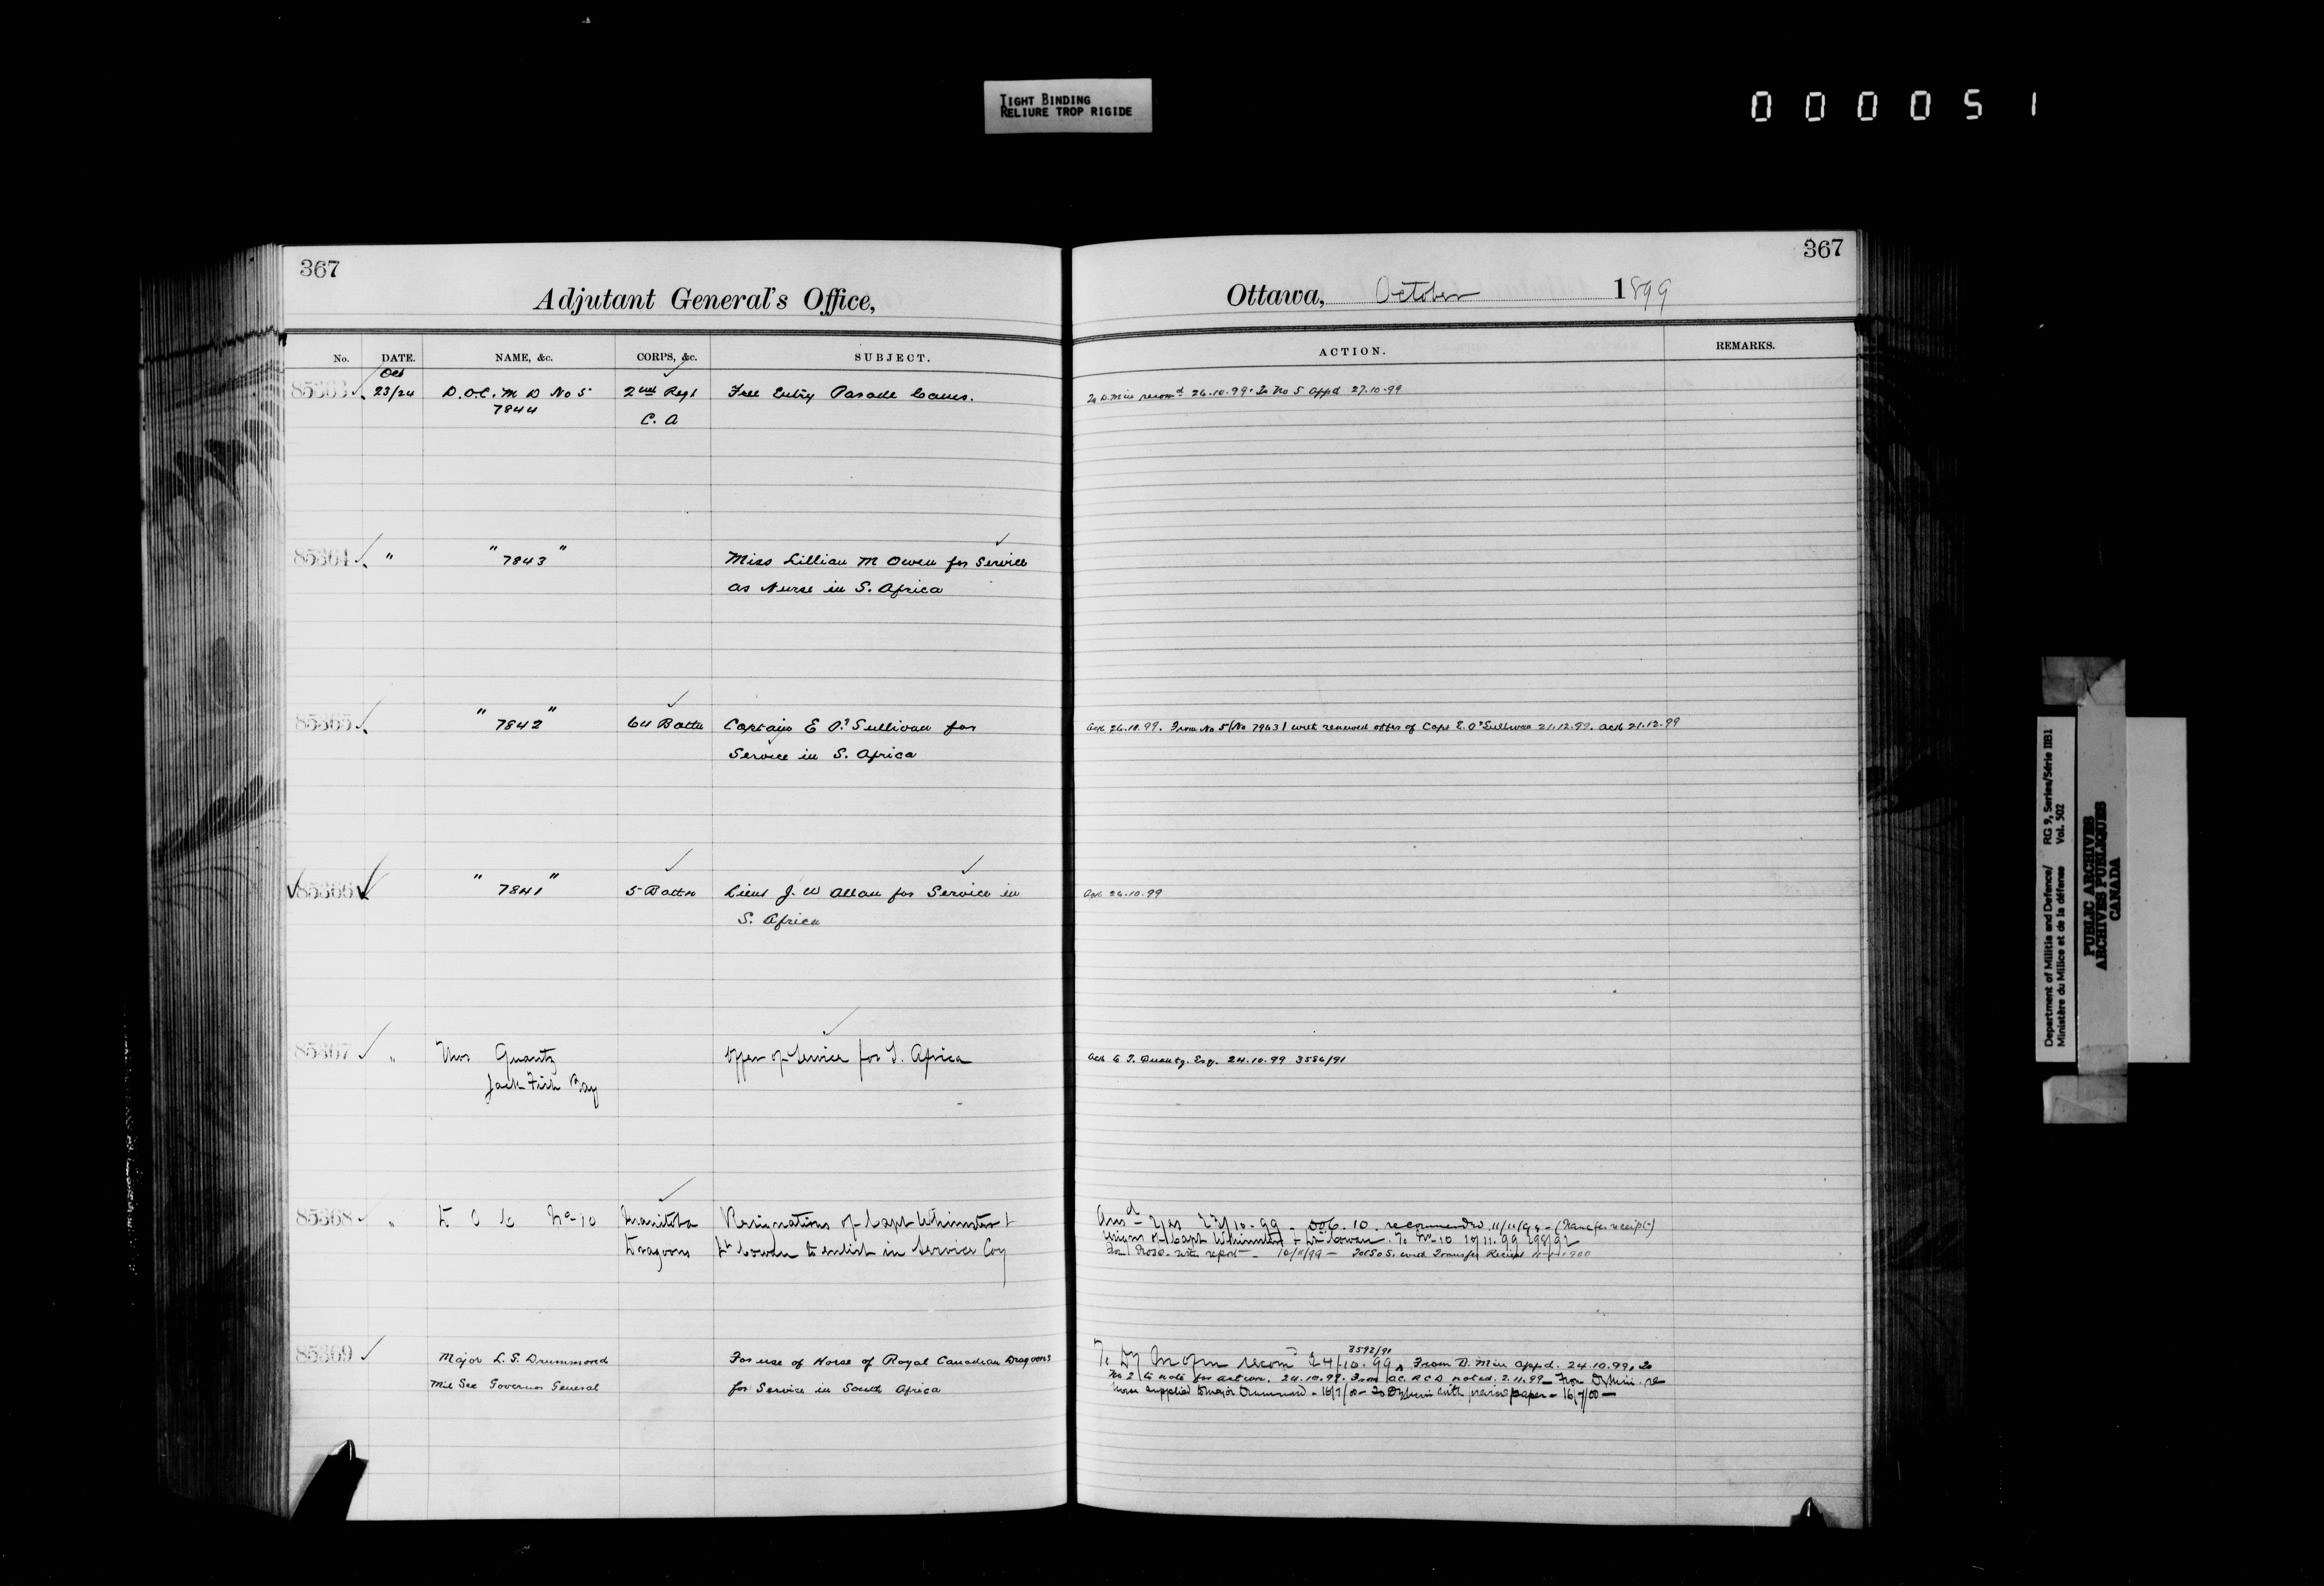 TIGHT BINDING
RELIURE TROP RIGIDE
000051
367
Adjutant General's Office,
No. DATE. NAME, &c. CORPS, &c. SUBJECT.
Oct
85363 23/24 D.O.C. M D No 5 2nd Regt Free Entry Parade Canes.
7844
C. A
85364 " " 7843 " Miss Lillian M Owen for Service
as Nurse in S. Africa
85365 " 7842 " 64 Battn Captain E O'Sullivan for
Service in S. Africa
85366 " 7841 " 5 Battn Lieut J. W Allan for Service in
S. Africa
85367 " Quantz Offer of Service for S. Africa
Jack Fish Bay
85368 " D O C No 10 Manitoba Resignations of Capt &
Dragoons Lt Cowan to enlist in Service Coy
85369 Major L. S. Drummond For use of Horse of Royal Canadian Dragoons
Mil Sec Governor General for Service in South Africa
367
Ottawa, October 1899
ACTION. REMARKS.
To D. Min recomd 26.10.99. To No 5 appd 27.10.99
Ack 26.10.99. From No 5 (No 7963) with renewed offer of Capt E. O'Sullivan 21.12.99. Ack 21.12.99
Ack 26.10.99
Ack to Quantz. Esq. 24.10.99 3586/91
Ansd Yes 23/10.99 - DOC. 10. recommended 11/11/99 - (Transfer receipt)
resigns of Capt & Lt Cowan. To No 10 11.99 298/92
with report - 10/11/99 - with Transfer Receipt 1900
3592/91
To recomd 24/10.99, From D. Min appd. 24.10.99, To
No 2 to note for action. 24.10.99. From O.C. R C D noted. 2.11.99 - From D/Min. re
horse supplied to Major Drummond - 16/7/00 - To D/Min with paper - 16/7/00 -
Department of Militia and Defence/ RG 9, Series/Série IIB1
Ministère du Milice et de la défense Vol. 502
PUBLIC ARCHIVES
ARCHIVES PUBLIQUES
CANADA